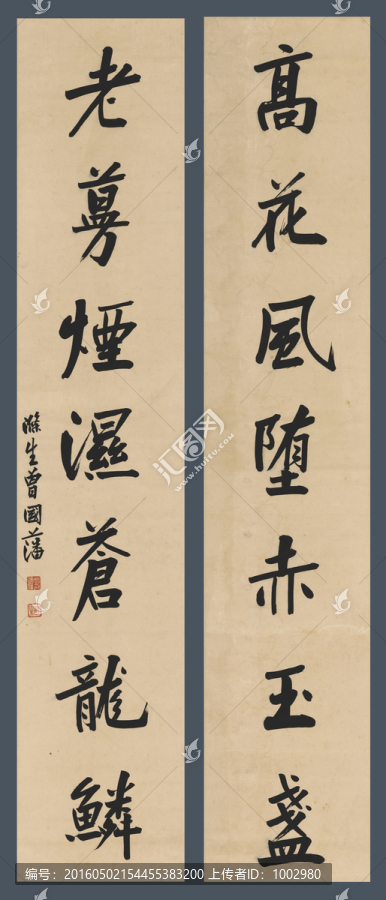 高花風堕赤玉盞
老蔓煙濕蒼龍鱗
滌生曾國藩
汇图网
www.huitu.com
编号：20160502154455383200 上传者ID：1002980